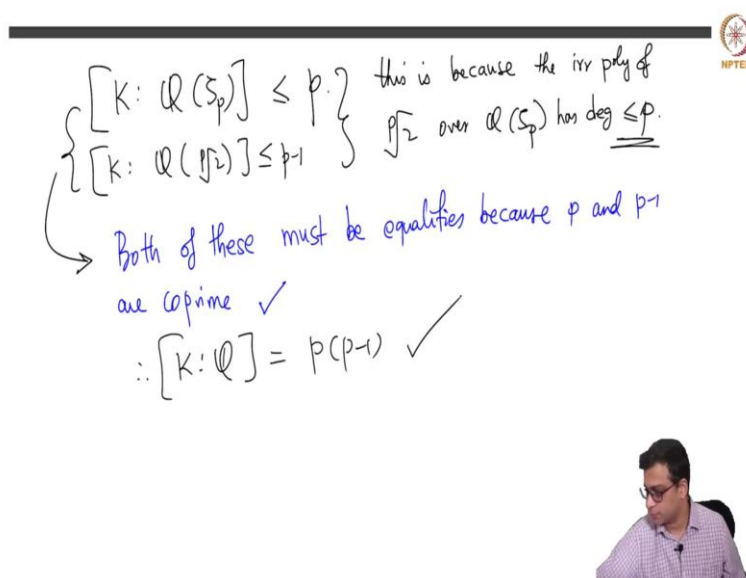 NPTEL
[K: Q(ζp)] ≤ p. } this is because the irr poly of
{ [K: Q(p√2)] ≤ p-1 } p√2 over Q(ζp) has deg ≤p.
Both of these must be equalities because p and p-1
are coprime ✓
∴ [K:Q] = p(p-1) ✓